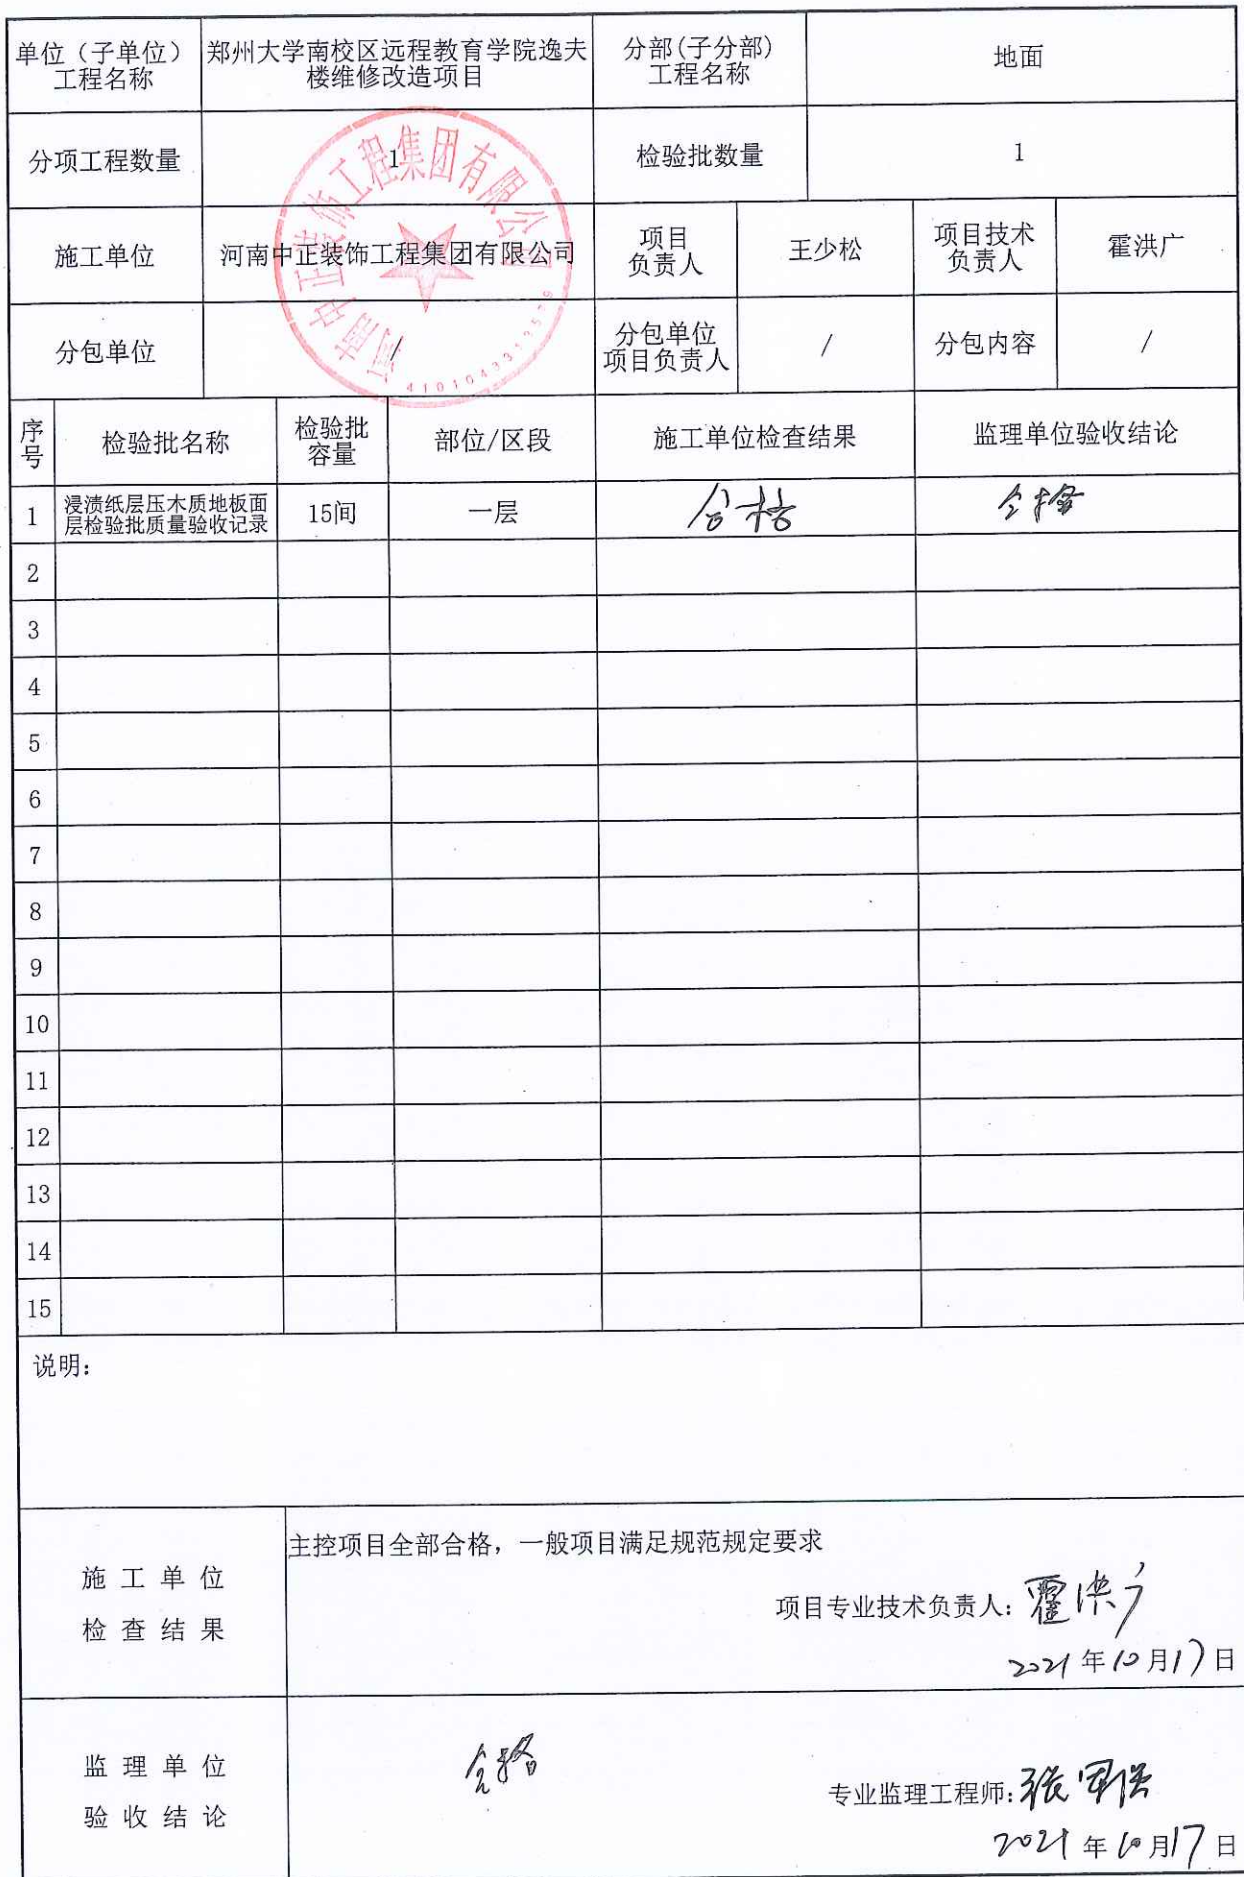 单位（子单位）
工程名称
郑州大学南校区远程教育学院逸夫
楼维修改造项目
分部(子分部)
工程名称
地面
分项工程数量
1
检验批数量
1
施工单位
河南中正装饰工程集团有限公司
项目
负责人
王少松
项目技术
负责人
霍洪广
分包单位
/
分包单位
项目负责人
/
分包内容
/
河南中正装饰工程集团有限公司
序号
检验批名称
检验批
容量
部位/区段
施工单位检查结果
监理单位验收结论
1
浸渍纸层压木质地板面
层检验批质量验收记录
15间
一层
合格
合格
2
3
4
5
6
7
8
9
10
11
12
13
14
15
说明：
施工单位
检查结果
主控项目全部合格，一般项目满足规范规定要求
项目专业技术负责人：霍洪广
2021年10月17日
监理单位
验收结论
合格
专业监理工程师：张军强
2021年10月17日